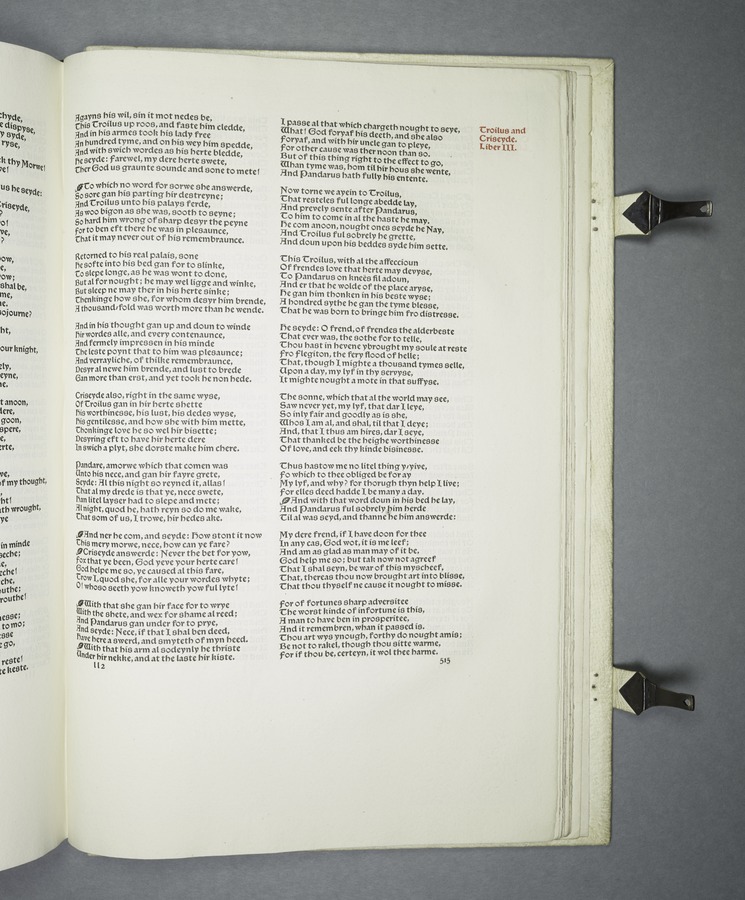 chyde,
dispyse,
syde,
ryse,
thy Morwe!
us he seyde:
Criseyde,
?
o!
ve,
?
ow,
e,
ow;
shal be,
me,
e.
sojourne?
ht,
our knight,
ely,
eyne,
ne.
t anoon,
dere,
goon,
spere,
e,
erte,
ve,
of my thought,
ht!
th wrought,
ye
in minde
seche;
e,
eche!
che,
uthe;
routhe!
esse;
to mo;
sse
go,
reste!
te keste.
Agayns his wil, sin it mot nedes be,
This Troilus up roos, and faste him cledde,
And in his armes took his lady free
An hundred tyme, and on his wey him spedde,
And with swich wordes as his herte bledde,
He seyde: farewel, my dere herte swete,
Ther God us graunte sounde and sone to mete!
To which no word for sorwe she answerde,
So sore gan his parting hir destreyne;
And Troilus unto his palays ferde,
As woo bigon as she was, sooth to seyne;
So hard him wrong of sharp desyr the peyne
For to ben eft there he was in plesaunce,
That it may never out of his remembraunce.
Retorned to his real palais, sone
He softe into his bed gan for to slinke,
To slepe longe, as he was wont to done,
But al for nought; he may wel ligge and winke,
But sleep ne may ther in his herte sinke;
Thenkinge how she, for whom desyr him brende,
A thousand-fold was worth more than he wende.
And in his thought gan up and doun to winde
Hir wordes alle, and every contenaunce,
And fermely impressen in his minde
The leste poynt that to him was plesaunce;
And verrayliche, of thilke remembraunce,
Desyr al newe him brende, and lust to brede
Gan more than erst, and yet took he non hede.
Criseyde also, right in the same wyse,
Of Troilus gan in hir herte shette
His worthinesse, his lust, his dedes wyse,
His gentilesse, and how she with him mette,
Thonkinge love he so wel hir bisette;
Desyring eft to have hir herte dere
In swich a plyt, she dorste make him chere.
Pandare, amorwe which that comen was
Unto his nece, and gan hir fayre grete,
Seyde: Al this night so reyned it, allas!
That al my drede is that ye, nece swete,
Han litel layser had to slepe and mete;
Al night, quod he, hath reyn so do me wake,
That som of us, I trowe, hir hedes ake.
And ner he com, and seyde: How stont it now
This mery morwe, nece, how can ye fare?
Criseyde answerde: Never the bet for yow,
Fox that ye been, God yeve your herte care!
God helpe me so, ye caused al this fare,
Trow I, quod she, for alle your wordes whyte;
O! whoso seeth yow knoweth yow ful lyte!
With that she gan hir face for to wrye
With the shete, and wex for shame al reed;
And Pandarus gan under for to prye,
And seyde: Nece, if that I shal ben deed,
Have here a swerd, and smyteth of myn heed.
With that his arm al sodeynly he thriste
Under hir nekke, and at the laste hir kiste.
ll2
I passe al that which chargeth nought to seye,
What! God foryaf his deeth, and she also
Foryaf, and with hir uncle gan to pleye,
For other cause was ther noon than so.
But of this thing right to the effect to go,
Whan tyme was, hom til hir hous she wente,
And Pandarus hath fully his entente.
Now torne we ayein to Troilus,
That resteles ful longe abedde lay,
And prevely sente after Pandarus,
To him to come in al the haste he may.
He com anoon, nought ones seyde he Nay,
And Troilus ful sobrely he grette,
And doun upon his beddes syde him sette.
This Troilus, with al the affeccioun
Of frendes love that herte may devyse,
To Pandarus on kneës fil adoun,
And er that he wolde of the place aryse,
He gan him thonken in his beste wyse;
A hondred sythe he gan the tyme blesse,
That he was born to bringe him fro distresse.
He seyde: O frend, of frendes the alderbeste
That ever was, the sothe for to telle,
Thou hast in hevene ybrought my soule at reste
Fro Flegiton, the fery flood of helle;
That, though I mighte a thousand tymes selle,
Upon a day, my lyf in thy servyse,
It mighte nought a mote in that suffyse.
The sonne, which that al the world may see,
Saw never yet, my lyf, that dar I leye,
So inly fair and goodly as is she,
Whos I am al, and shal, til that I deye;
And, that I thus am hires, dar I seye,
That thanked be the heighe worthinesse
Of love, and eek thy kinde bisinesse.
Thus hastow me no litel thing y-yive,
Fo which to thee obliged be for ay
My lyf, and why? for thorugh thyn help I live;
For elles deed hadde I be many a day.
And with that word doun in his bed he lay,
And Pandarus ful sobrely him herde
Til al was seyd, and thanne he him answerde:
My dere frend, if I have doon for thee
In any cas, God wot, it is me leef;
And am as glad as man may of it be,
God help me so; but tak now not agreef
That I shal seyn, be war of this myscheef,
That, thereas thou now brought art into blisse,
That thou thyself ne cause it nought to misse.
For of fortunes sharp adversitee
The worst kinde of infortune is this,
A man to have ben in prosperitee,
And it remembren, whan it passed is.
Thou art wys ynough, forthy do nought amis;
Be not to rakel, though thou sitte warme,
For if thou be, certeyn, it wol thee harme.
515
Troilus and
Criseyde.
Liber III.